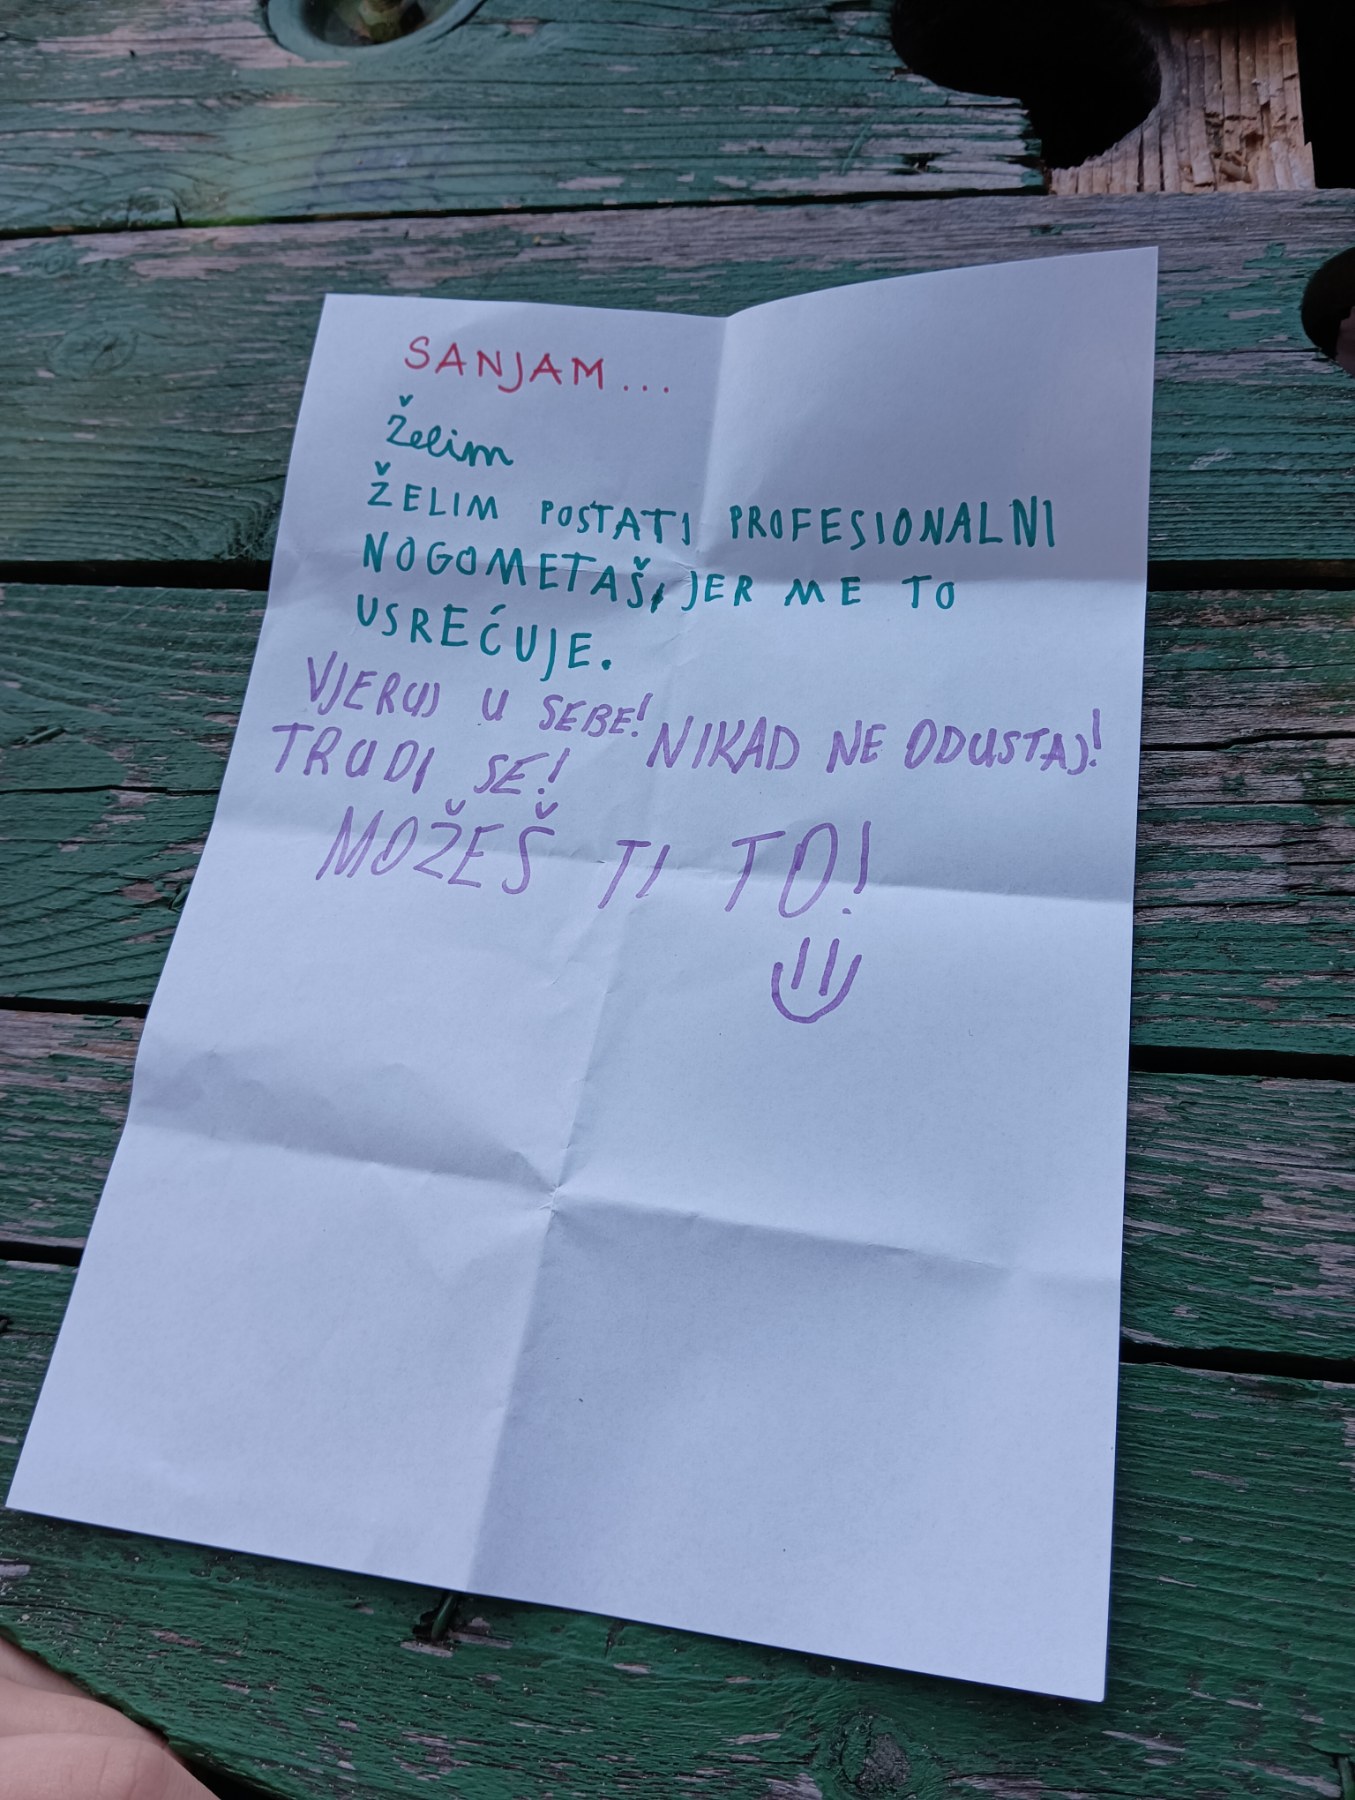 SANJAM...
Želim
ŽELIM POSTATI PROFESIONALNI
NOGOMETAŠ, JER ME TO
USREĆUJE.
VJERUJ U SEBE! NIKAD NE ODUSTAJ!
TRUDI SE!
MOŽEŠ TI TO!